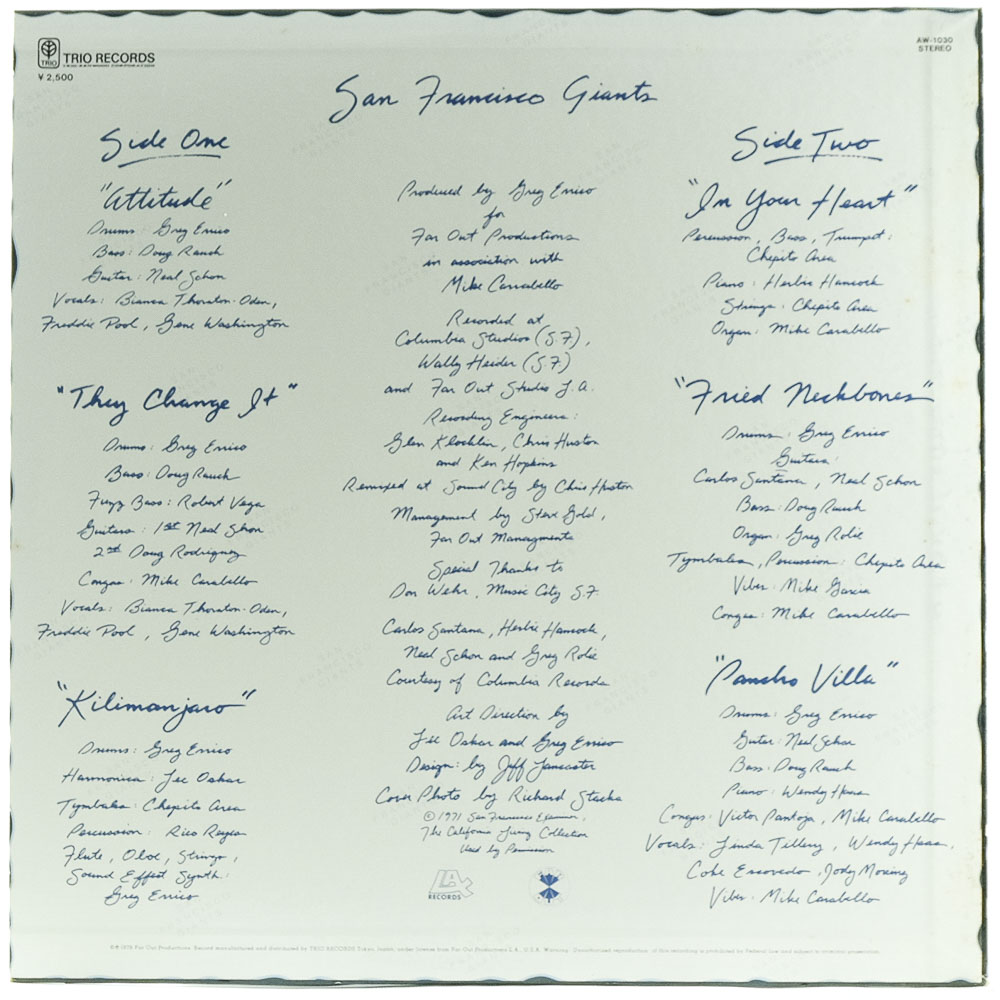 TRIO
TRIO RECORDS
¥ 2,500
AW-1030
STEREO
San Francisco Giants
Side One
"Attitude"
Drums: Greg Errico
Bass: Doug Rauch
Guitar: Neal Schon
Vocals: Bianca Thornton-Oden,
Freddie Pool, Gene Washington
"They Change It"
Drums: Greg Errico
Bass: Doug Rauch
Fuzz Bass: Robert Vega
Guitars: 1st Neal Shon
2nd Doug Rodriquez
Congas: Mike Carabello
Vocals: Bianca Thornton-Oden,
Freddie Pool, Gene Washington
"Kilimanjaro"
Drums: Greg Errico
Harmonica: Lee Oskar
Tymbales: Chepito Area
Percussion: Rico Reyes
Flute, Oboe, Strings,
Sound Effect Synth:
Greg Errico
Produced by Greg Errico
for
Far Out Productions
in association with
Mike Carrabello
Recorded at
Columbia Studios (S.F.),
Wally Heider (S.F.)
and Far Out Studio L.A.
Recording Engineers:
Glen Klockin, Chris Huston
and Ken Hopkins
Remixed at Sound City by Chris Huston
Management by Steve Gold,
Far Out Managments
Special Thanks to
Don Wehr, Music City S.F.
Carlos Santana, Herbie Hancock,
Neal Schon and Greg Rolie
Courtesy of Columbia Records
Art Direction by
Lee Oskar and Greg Errico
Design: by Jeff Lancaster
Cover Photo by Richard
© 1971 San Francisco Examiner,
The California Living Collection
Used by Permission
LAX
RECORDS
Side Two
"In Your Heart"
Percussion, Bass, Trumpet:
Chepito Area
Piano: Herbie Hancock
Strings: Chepito Area
Organ: Mike Carabello
"Fried Neckbones"
Drums: Greg Errico
Guitars:
Carlos Santana, Neal Schon
Bass: Doug Rauch
Organ: Greg Rolie
Tymbales, Percussion: Chepito Area
Vibes: Mike Garcia
Congas: Mike Carabello
"Pancho Villa"
Drums: Greg Errico
Guitar: Neal Schon
Bass: Doug Rauch
Piano: Wendy Haas
Congas: Victor Pantoja, Mike Carabello
Vocals: Linda Tillery, Wendy Haas,
Coke Escovedo, Jody Moreing
Vibes: Mike Carabello
Far Out Productions. Record manufactured and distributed by TRIO RECORDS Tokyo, Japan, under license from Far Out Productions L.A., U.S.A. Warning: Unauthorized reproduction of this recording is prohibited by Federal law and subject to criminal prosecution.